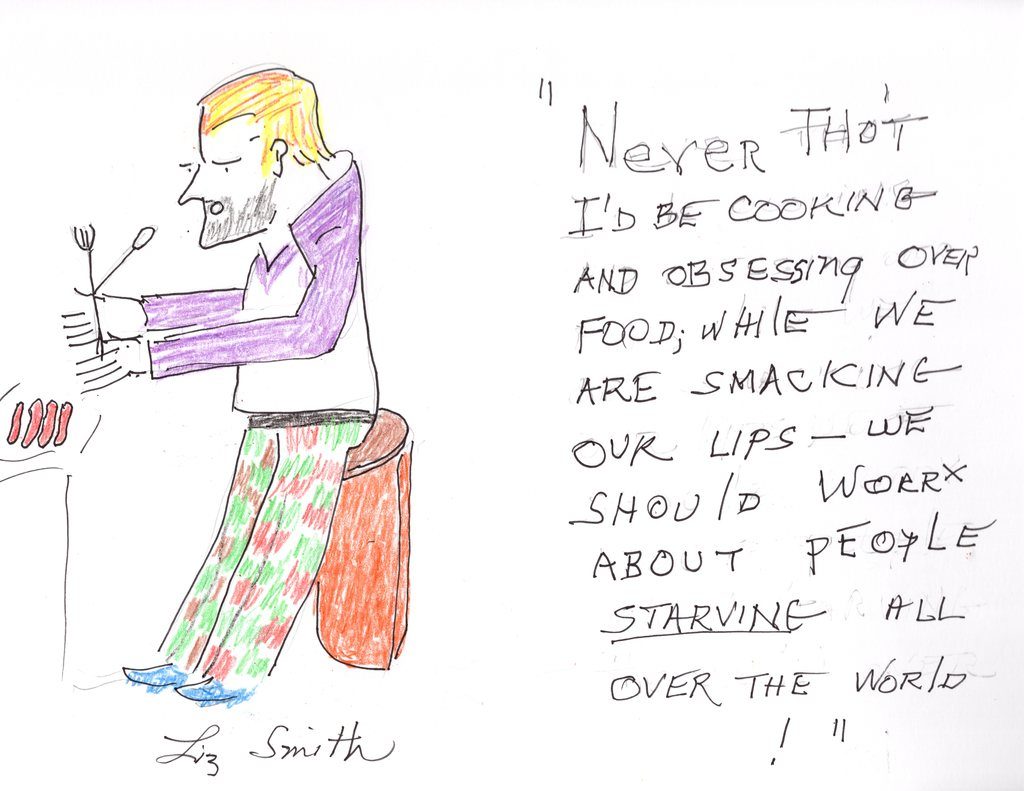 "NEVER THO'T
I'D BE COOKING
AND OBSESSING OVER
FOOD; WHILE WE
ARE SMACKING
OUR LIPS — WE
SHOULD WORRX
ABOUT PEOPLE
STARVING ALL
OVER THE WORLD
!"
Liz Smith